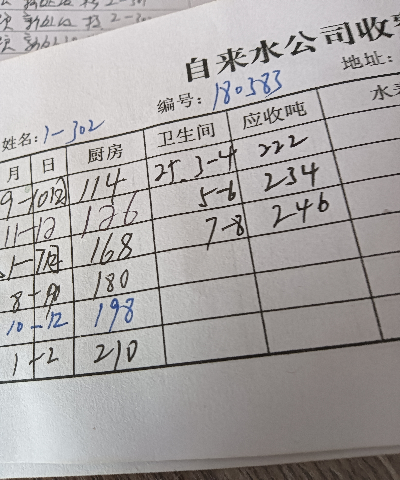 自来水公司收
编号: 180583
地址:
姓名: 1-302
月 日 厨房 卫生间 应收吨 水
9-10 114 25. 3-4 222
11-12 126 5-6 234
1-7 168 7-8 246
8- 180
10-12 198
1-2 210